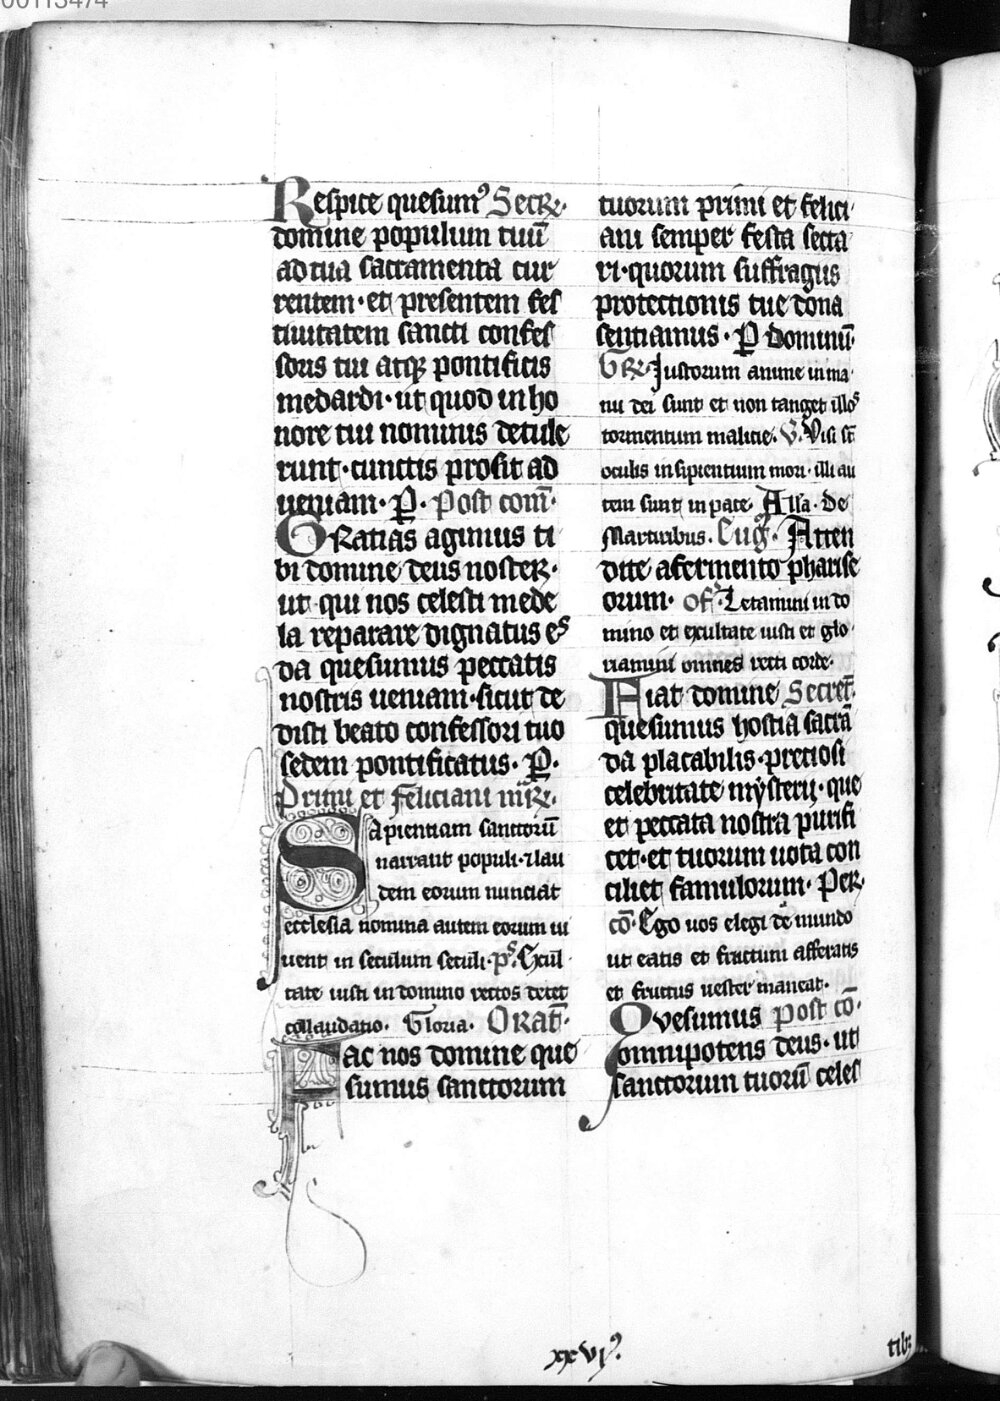 00113474
Respice quesumꝰ Secr̃.
domine populum tuū
ad tua sacramenta cur
rentem· et presentem fes
tiuitatem sancti confes
soris tui atqꝫ pontificis
medardi· ut quod in ho
nore tui nominis detule
runt· cunctis prosit ad
ueniam· P̱. Post com̄·
Gratias agimus ti
bi domine deus noster·
ut qui nos celesti mede
la reparare dignatus es
da quesumus peccatis
nostris ueniam· sicut de
disti beato confessori tuo
sedem pontificatus· P̱.
Primi et feliciani mr̃ꝝ.
Sapientiam sanctorū
narrant populi· ⁊ lau
dem eorum nunciat
ecclesia nomina autem eorum ui
uent in seculum seculi· ps̃. Exul
tate iusti in domino rectos decet
collaudatio. Gloria. Orat̃·
Fac nos domine que
sumus sanctorum
tuorum primi et felici
ani semper festa secta
ri· quorum suffragiis
protectionis tue dona
sentiamus· P̱ Dominū·
Gr̃. Iustorum anime in ma
nu dei sunt et non tanget illos
tormentum malicie. V̓. Visi st̄
oculis insipientium mori· illi au
tem sunt in pace· Alla· De
Martiribus. Eug̃. Atten
dite a fermento pharise
orum· of̃. Letamini in do
mino et exultate iusti et glo
riamini omnes recti corde·
Fiat domine Secret̃.
quesumus hostia sacrā
da placabilis· preciosi
celebritate mysterii· que
et peccata nostra purifi
cet· et tuorum uota con
ciliet famulorum· Per·
cō· Ego uos elegi de mundo
ut eatis et fructum afferatis
et fructus uester maneat·
Quesumus Post cō·
omnipotens deus· ut
sanctorum tuorū celes
xxvjꝰ.
tibꝫ